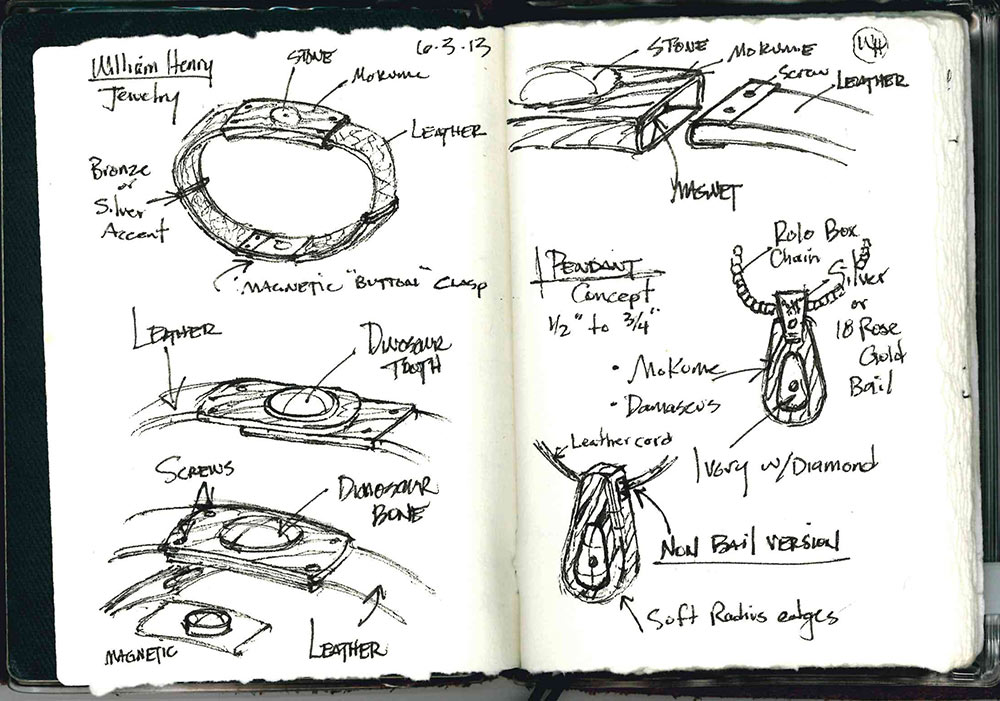 William Henry
Jewelry
6.3.13
STONE
MOKUME
LEATHER
Bronze
or
Silver
Accent
MAGNETIC "BUTTON" CLASP
LEATHER
DINOSAUR
TOOTH
SCREWS
DINOSAUR
BONE
MAGNETIC
LEATHER
WH
STONE
MOKUME
SCREW
LEATHER
MAGNET
PENDANT
Concept
1/2" to 3/4"
Rolo Box
Chain
Silver
or
18 Rose
Gold
Bail
• MOKUME
• Damascus
Leather cord
Ivory w/Diamond
NON BAIL VERSION
Soft Radius edges